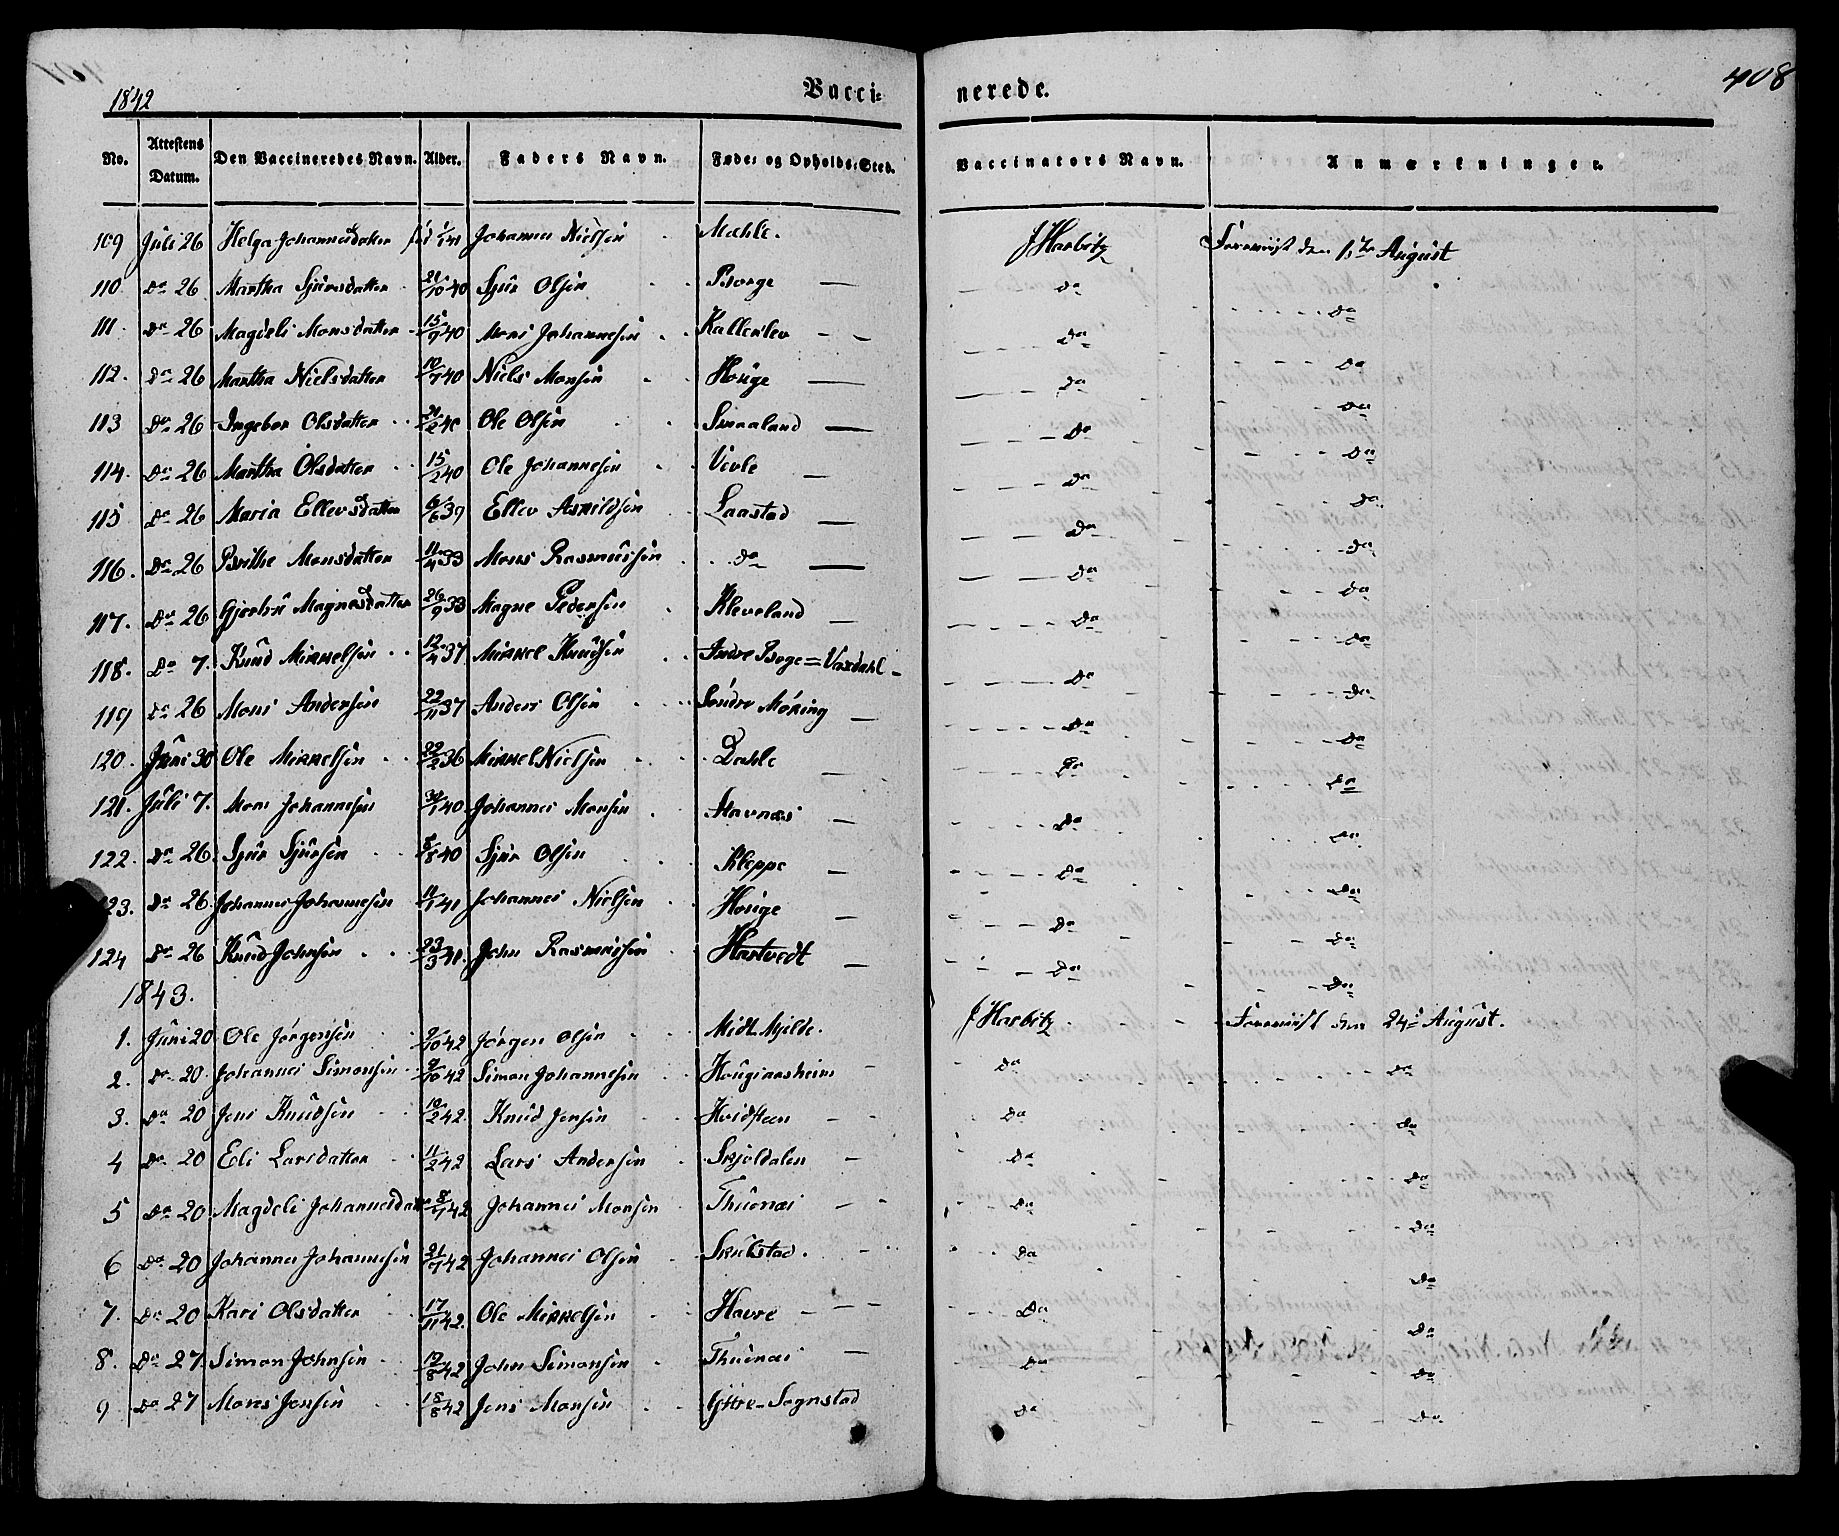 408
1842 Vacci- nerede.
No. Attestens Datum. Den Vaccineredes Navn. Alder. Faders Navn. Føde- og Opholds-Sted. Vaccinators Navn. Anmærkninger.
109 Juli 26 Helga Johannesdatter 1/1 41 Johannes Nielsen Mæhle. J Harbitz Foreviist den 1ste August
110 Do 26 Martha Sjursdatter 21/10 40 Sjur Olsen Borge — Do Do
111. Do 26 Magdeli Monsdatter 15/9 40 Mons Johannesen Kallerlev — Do Do
112. Do 26 Martha Nielsdatter 10/7 40 Niels Monsen Houge — Do Do
113 Do 26 Ingebor Olsdatter 40 Ole Olsen Smaaland — Do Do
114. Do 26 Martha Olsdatter 15/2 40 Ole Johannesen Vevle — Do Do
115 Do 26 Maria Ellevsdatter 6/6 39 Ellev Askildsen Laastad — Do Do
116. Do 26 Brithe Monsdatter 11/4 39 Mons Rasmussen Do — Do Do
117. Do 26 Gjertrü Magnesdatter 26/9 38 Magne Pedersen Kleveland — Do Do
118. Do 7. Knud Mikkelsen 12/4 37 Mikkel Knudsen Indre Boge = Vaxdahl - Do Do
119 Do 26 Mons Andersen 22/11 37 Anders Olsen Søndre Møring — Do Do
120. Juni 30 Ole Mikkelsen 22/2 36 Mikkel Nielsen Dahle — Do Do
121. Juli 7. Mons Johannesen 30/1 40 Johannes Monsen Stavnæs — Do Do
122. Do 26 Sjur Sjursen 8/8 40 Sjur Olsen Kleppe — Do Do
123. Do 26 Johannes Johannesen 11/1 41 Johannes Nielsen Houge — Do Do
124 Do 26 Knud Johnsen 23/3 41. John Rasmussen Hartvedt — Do Do
1843.
1. Juni 20 Ole Jørgensen 9/10 42 Jørgen Olsen Midt-Mjelde. J Harbitz Foreviist den 24de August.
2. Do 20. Johannes Simonsen 9/10 42 Simon Johannesen Hougiarsheim Do Do
3. Do 20 Jens Knudsen 10/2 42. Knud Jensen Hvidsteen Do Do
4 Do 20 Eli Larsdatter 11/2 42 Lars Andersen Skjoldalen — Do Do
5 Do 20 Magdeli Johannesdatter 8/1 42 Johannes Monsen Thunæs Do Do
6 Do 20 Johannes Johannesen 21/7 42 Johannes Olsen Skulstad. Do Do
7. Do 20 Kari Olsdatter 17/11 42. Ole Mikkelsen Havre Do Do
8. Do 27 Simon Johnsen 19/8 42 John Simonsen Thunæs — Do Do
9 Do 27 Mons Jensen 18/8 42 Jens Monsen Yttre-Sognstad Do Do